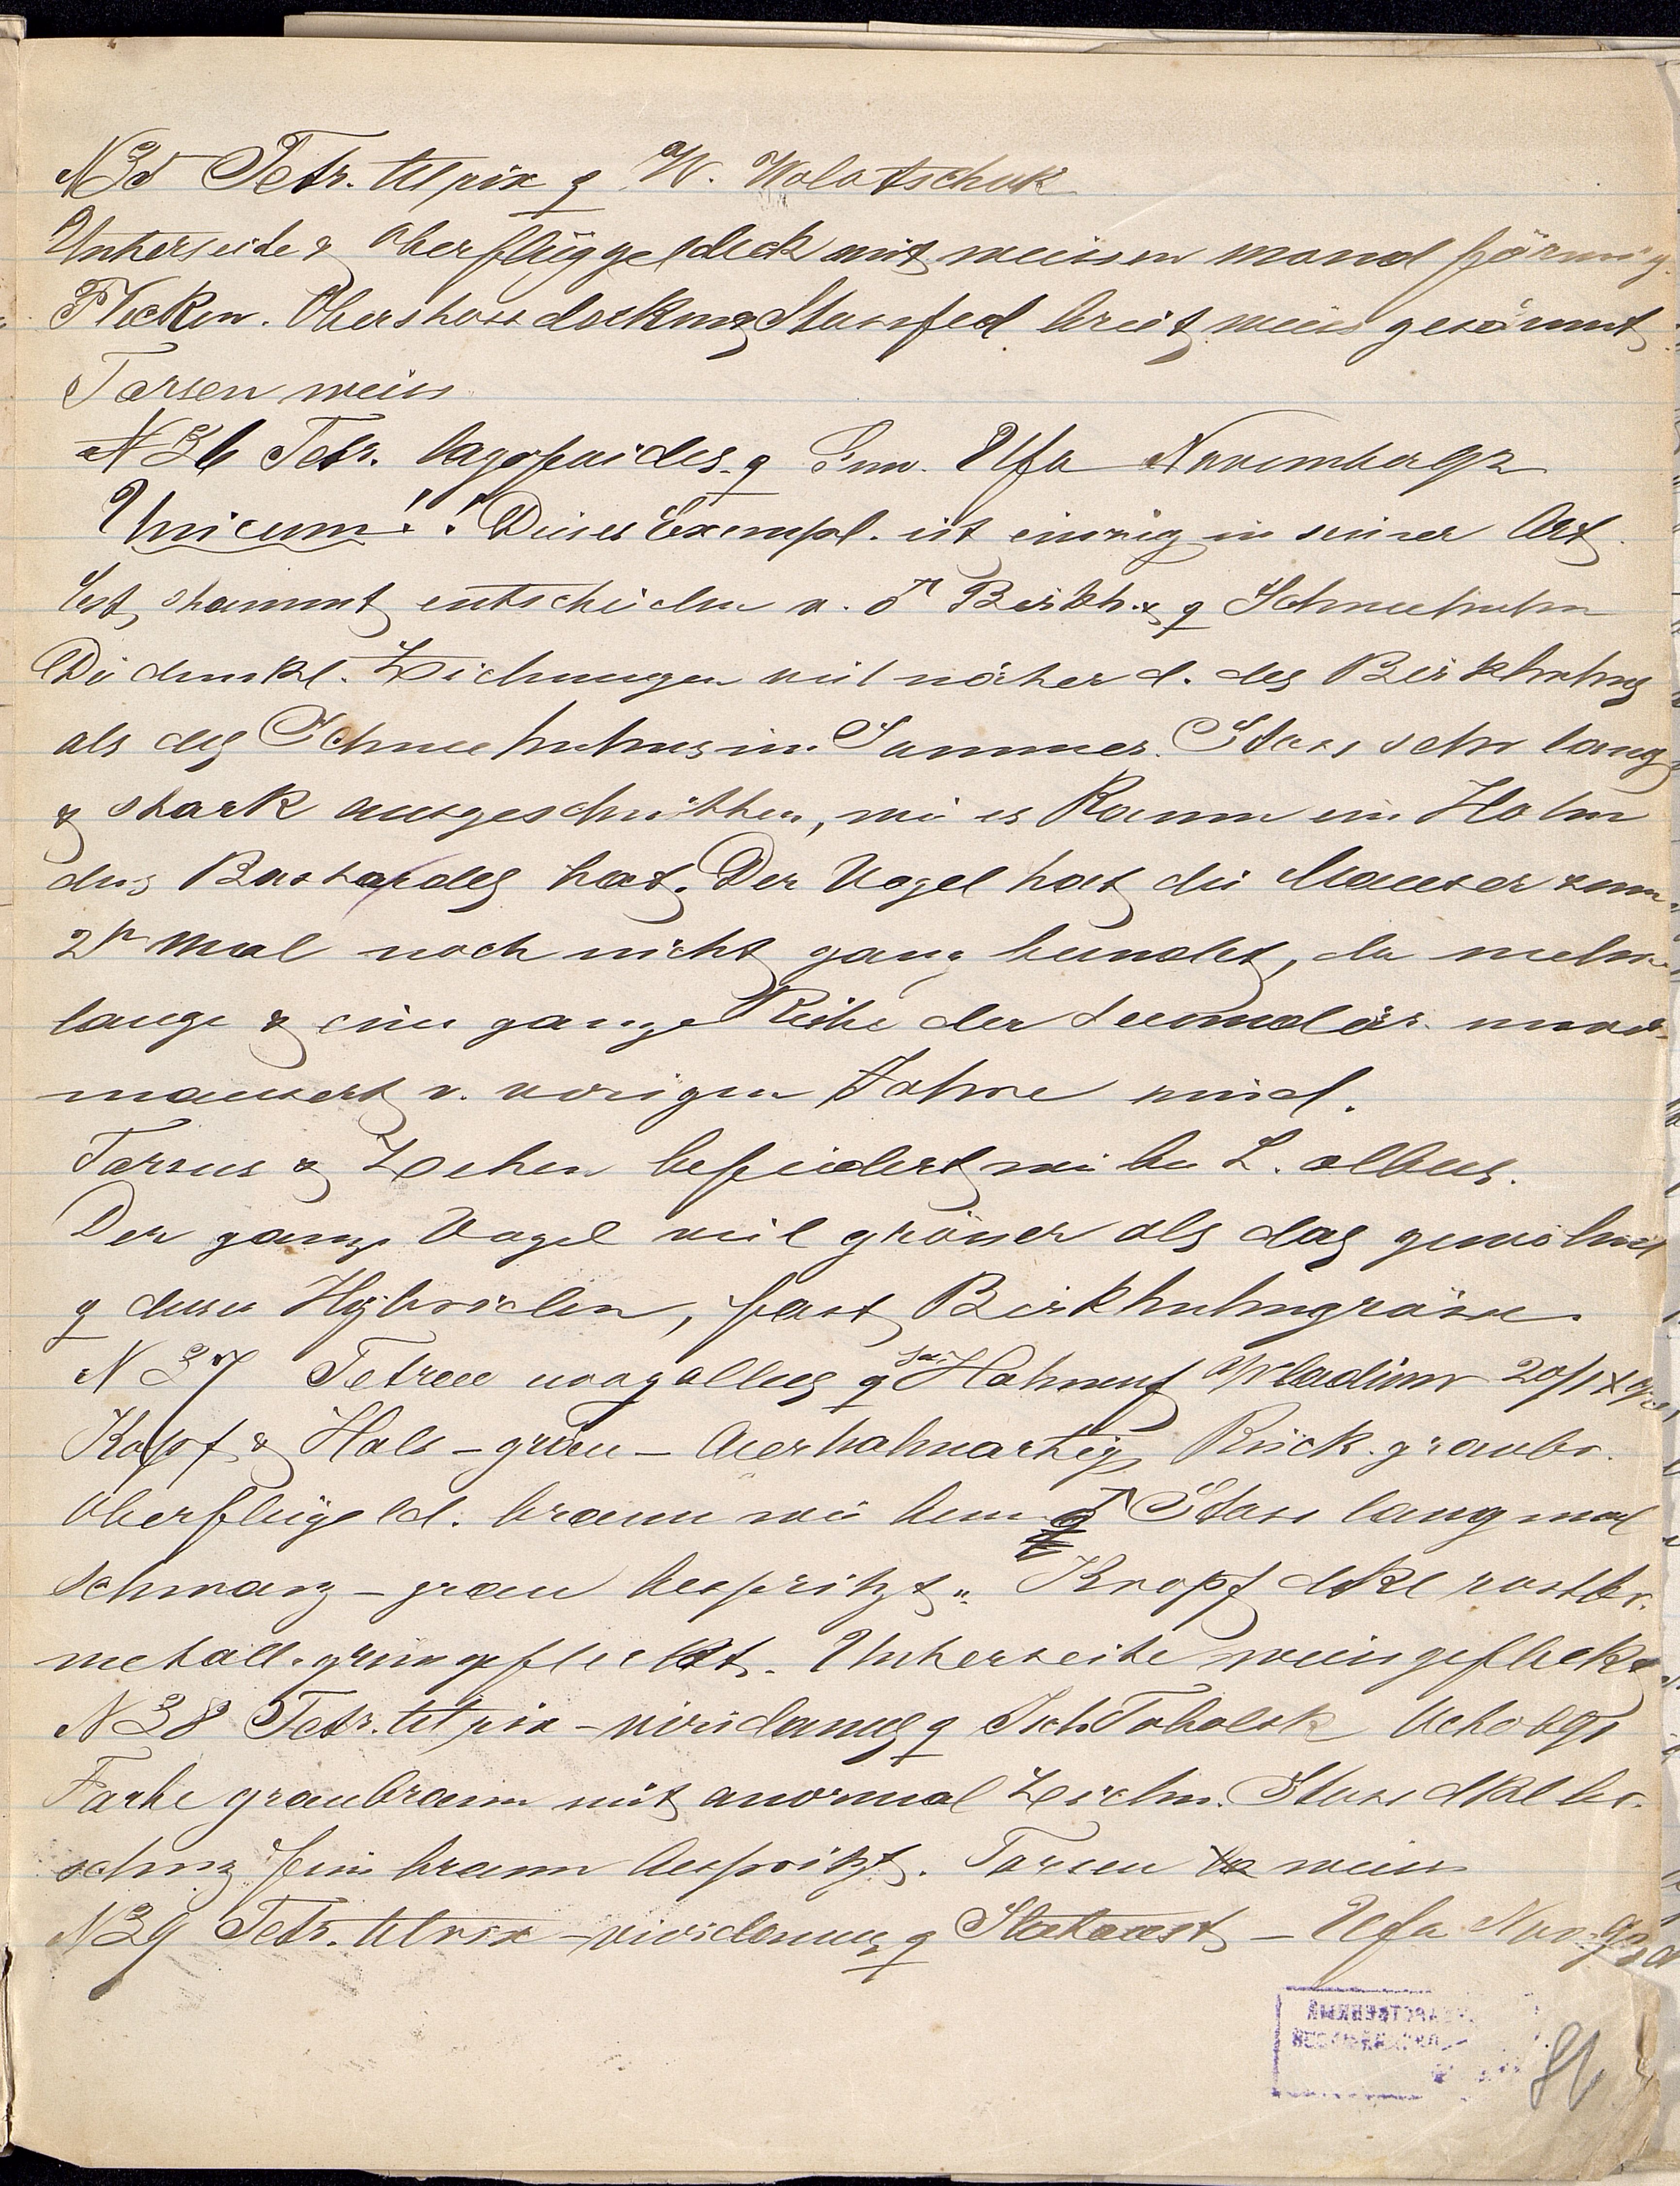 N 35 Tetr. tetrix ♀ W. Wolotschok
Unterseite & Oberflüggeldeck mit weissen mond förmig.
Flecken. Oberstoss deckung Stossfed breit weiss gesäumt
Tarsen weiss
N 36 Tetr. lagopoides. ♀ Gouv. Ufa November 92
Unicum!! Dieses Exempl. ist einzig in seiner Art.
Est stammt entschieden v. ♂ Birkh. & ♀ Schneehuhn
Di dunkl. Zeichnungen viel näher d. des Birkhuhns
als des Schneehuhns im Sommer. Stoss sehr lang
& stark ausgeschnitten, wie es kaum ein Hahn
des Bastardes hat. Der Vogel hat die Mauser zum
2n Mal noch nicht ganz beendet, da mehre
lange & eine ganze Reihe der secundär. unver-
mausert v. vorigen Jahre sind.
Tarsus & Zehen befiedert wie bei L. albus.
Der ganze Vogel viel grösser als das gewöhnl
♀ dieser Hybriden, fast Birkhuhngrösse.
N 37 Tetrao urogallus ♀ Hahnenf Wladimir 20/IX 92
Kopf & Hals – grau – Auerhahnartig Rück. graubr.
Oberflügeld. braun wie beim ♂ Stoss lang und
schwarz – grau bespritzt. Kropf dkl rostbr.
metall. grün gefleckt. Unterseite weiss gefleckt
N 38 Tetr. tetrix – viridanus ♀ Isch. Tobolsk Octob 91
Farbe graubraun mit anormal Zeichn. Stoss dkl br.
schwz fein braun bespritzt. Tarsen weiss
N 39 Tetr. tetrix – viridanus ♀ Slatoust – Ufa Nov. 92
86